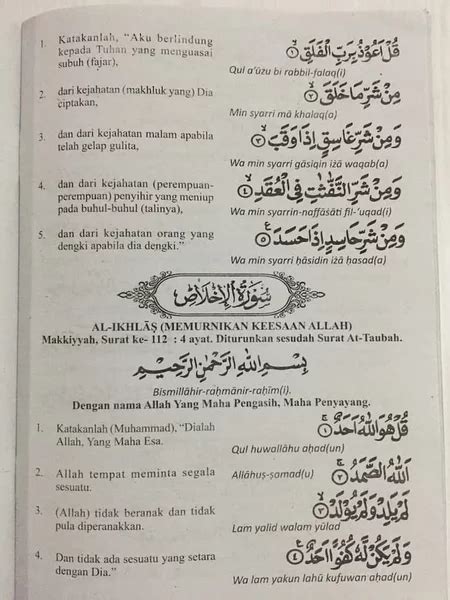 1. Katakanlah, "Aku berlindung
kepada Tuhan yang menguasai
subuh (fajar),
قُلْ اَعُوْذُ بِرَبِّ الْفَلَقِۙ ۝١
Qul a'ūżu bi rabbil-falaq(i)
2. dari kejahatan (makhluk yang) Dia
ciptakan,
مِنْ شَرِّ مَا خَلَقَۙ ۝٢
Min syarri mā khalaq(a)
3. dan dari kejahatan malam apabila
telah gelap gulita,
وَمِنْ شَرِّ غَاسِقٍ اِذَا وَقَبَۙ ۝٣
Wa min syarri gāsiqin iżā waqab(a)
4. dan dari kejahatan (perempuan-
perempuan) penyihir yang meniup
pada buhul-buhul (talinya),
وَمِنْ شَرِّ النَّفّٰثٰتِ فِى الْعُقَدِۙ ۝٤
Wa min syarrin-naffāśāti fil-'uqad(i)
5. dan dari kejahatan orang yang
dengki apabila dia dengki."
وَمِنْ شَرِّ حَاسِدٍ اِذَا حَسَدَ ۝٥
Wa min syarri ḥāsidin iżā ḥasad(a)
سُوْرَةُ الْاِخْلَاصِ
AL-IKHLĀṢ (MEMURNIKAN KEESAAN ALLAH)
Makkiyyah, Surat ke- 112 : 4 ayat. Diturunkan sesudah Surat At-Taubah.
بِسْمِ اللّٰهِ الرَّحْمٰنِ الرَّحِيْمِ
Bismillāhir-raḥmānir-raḥīm(i).
Dengan nama Allah Yang Maha Pengasih, Maha Penyayang.
1. Katakanlah (Muhammad), "Dialah
Allah, Yang Maha Esa.
قُلْ هُوَ اللّٰهُ اَحَدٌۚ ۝١
Qul huwallāhu aḥad(un)
2. Allah tempat meminta segala
sesuatu.
اَللّٰهُ الصَّمَدُۚ ۝٢
Allāhuṣ-ṣamad(u)
3. (Allah) tidak beranak dan tidak
pula diperanakkan.
لَمْ يَلِدْ وَلَمْ يُوْلَدْۙ ۝٣
Lam yalid walam yūlad
4. Dan tidak ada sesuatu yang setara
dengan Dia."
وَلَمْ يَكُنْ لَّهٗ كُفُوًا اَحَدٌ ۝٤
Wa lam yakun lahū kufuwan aḥad(un)